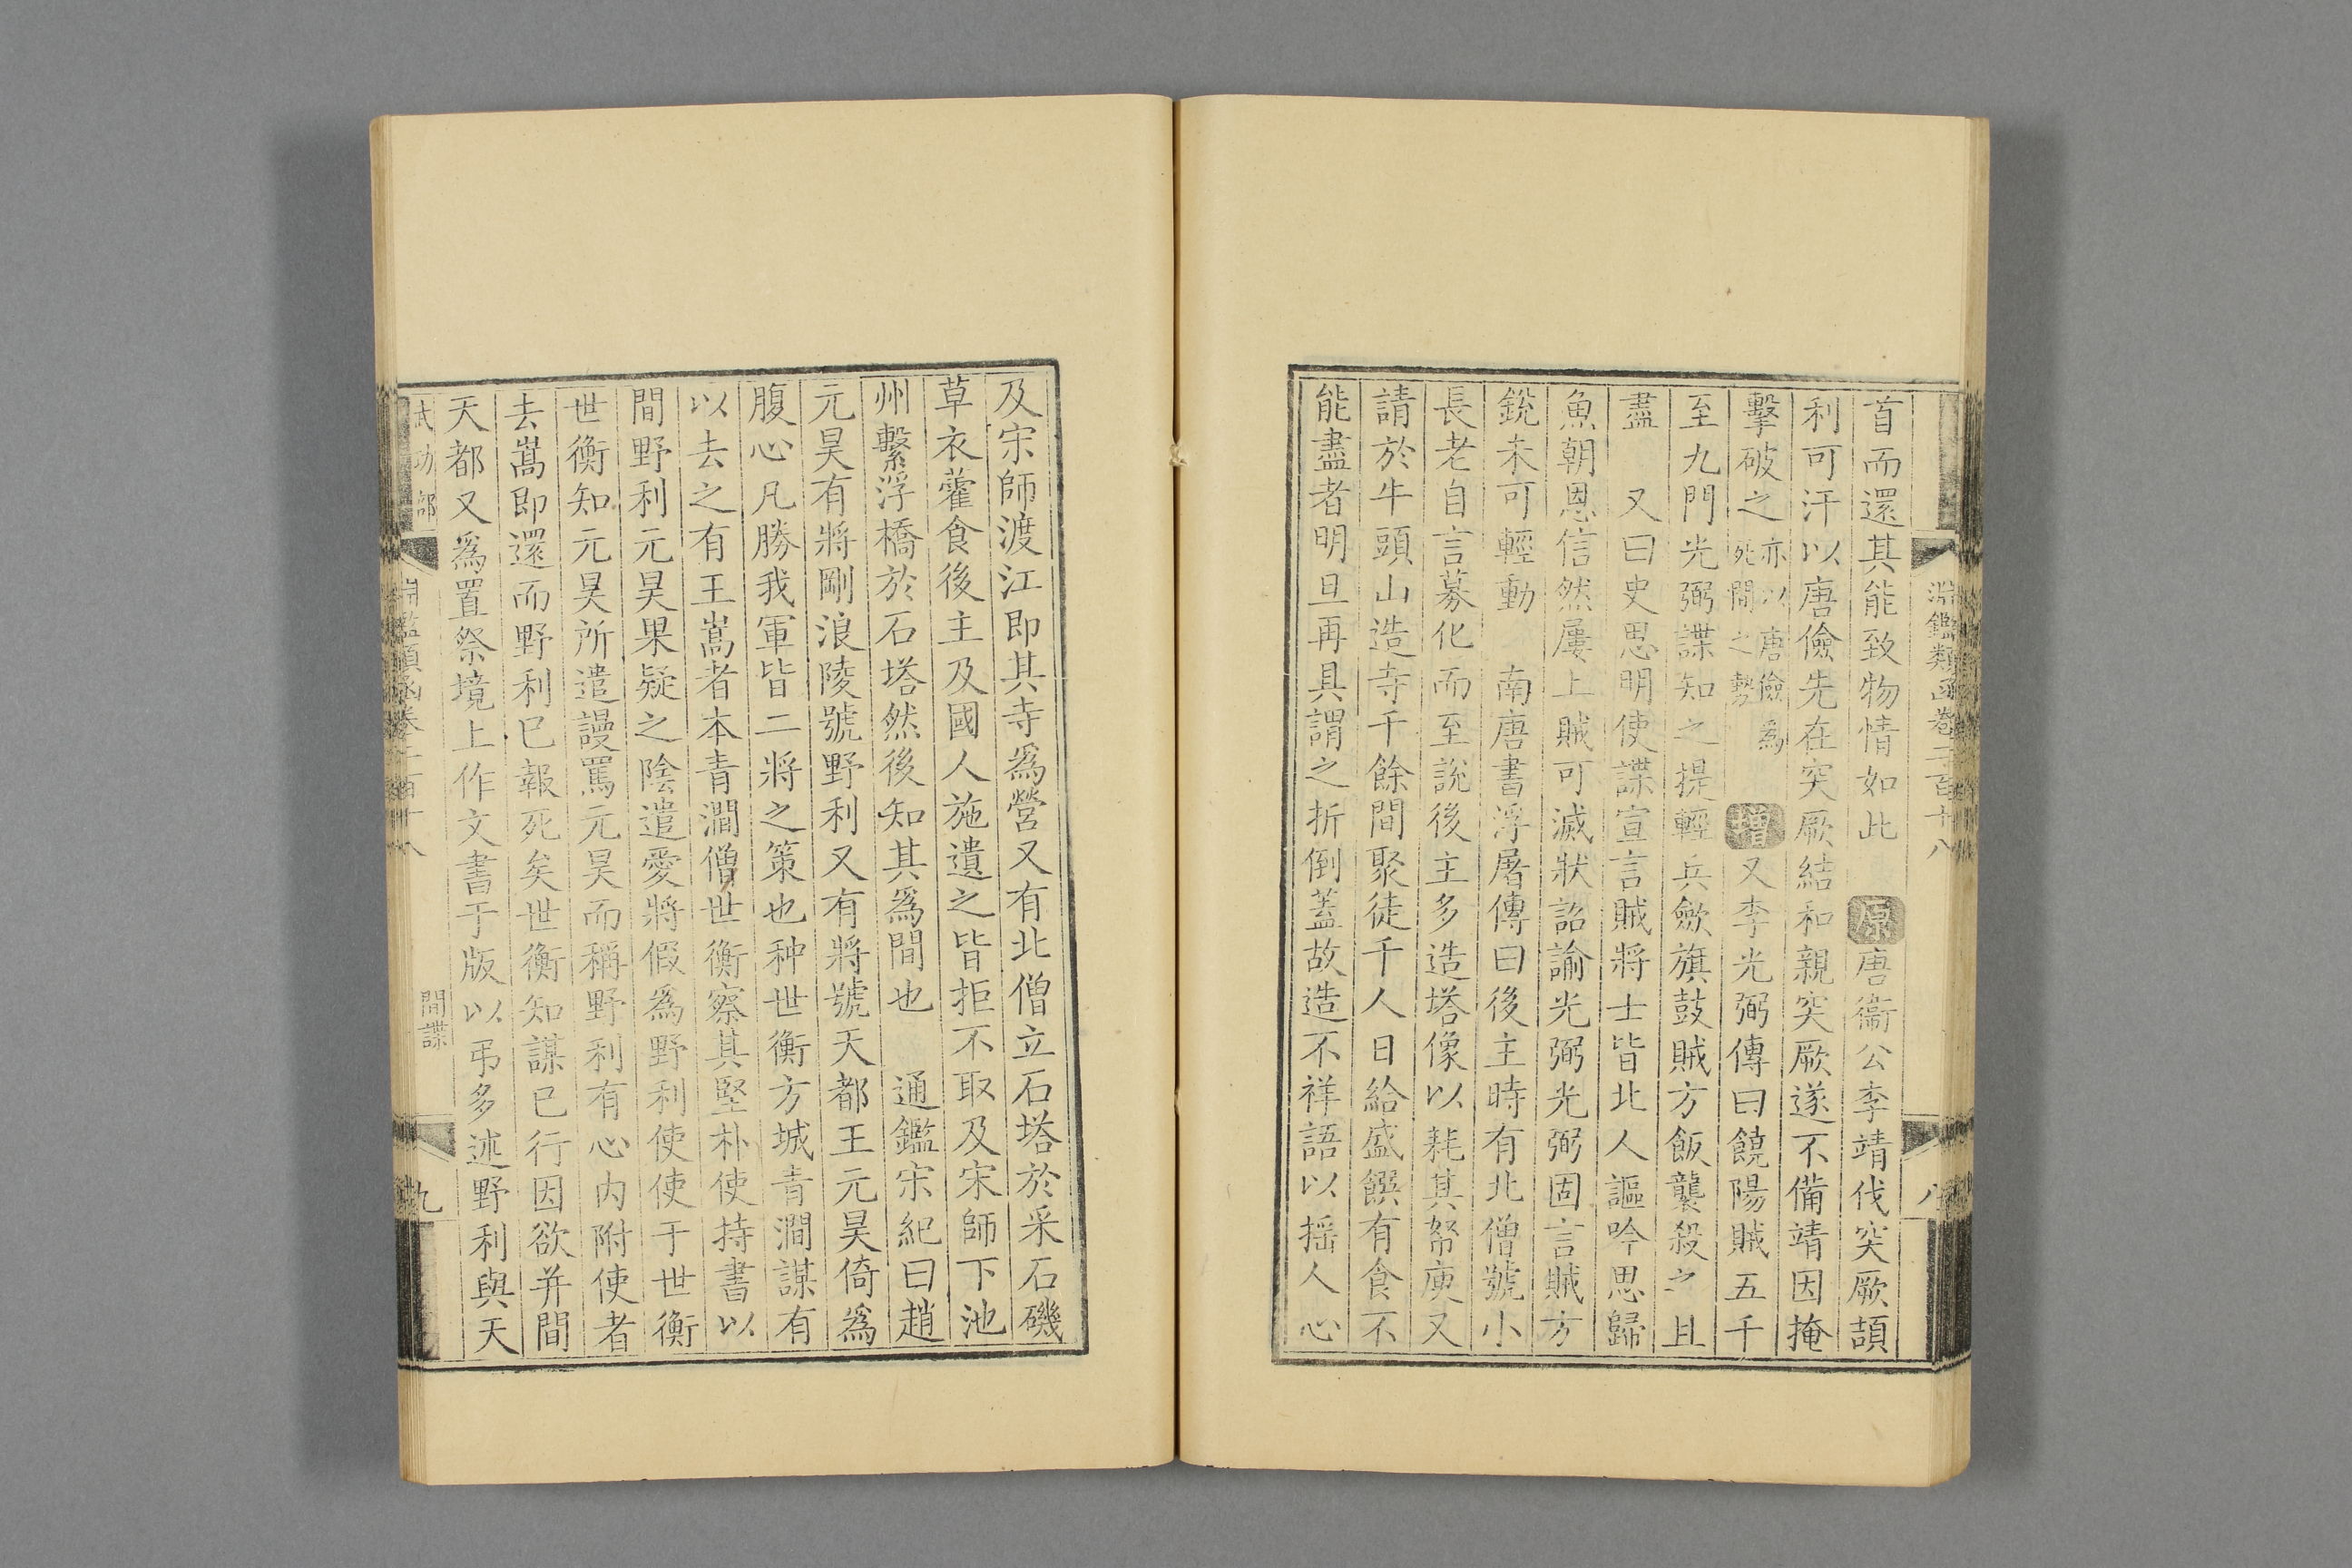 淵鑑類函卷二百十八
八
首而還其能致物情如此 原 唐衞公李靖伐突厥頡
利可汗以唐儉先在突厥結和親突厥遂不備靖因掩
擊破之 亦以唐儉爲死間之勢 增 又李光弼傳曰饒陽賊五千
至九門光弼諜知之提輕兵歛旗鼓賊方飯襲殺之且
盡 又曰史思明使諜宣言賊將士皆北人謳吟思歸
魚朝恩信然屢上賊可滅狀詔諭光弼光弼固言賊方
銳未可輕動 南唐書浮屠傳曰後主時有北僧號小
長老自言募化而至說後主多造塔像以耗其帑庾又
請於牛頭山造寺千餘間聚徒千人日給盛饌有食不
能盡者明旦再具謂之折倒蓋故造不祥語以搖人心
及宋師渡江即其寺爲營又有北僧立石塔於采石磯
草衣藿食後主及國人施遺之皆拒不取及宋師下池
州繫浮橋於石塔然後知其爲間也 通鑑宋紀曰趙
元昊有將剛浪陵號野利又有將號天都王元昊倚爲
腹心凡勝我軍皆二將之策也种世衡方城青澗謀有
以去之有王嵩者本青澗僧世衡察其堅朴使持書以
間野利元昊果疑之陰遣愛將假爲野利使使于世衡
世衡知元昊所遣謾罵元昊而稱野利有心内附使者
去嵩即還而野利已報死矣世衡知謀已行因欲并間
天都又爲置祭境上作文書于版以弔多述野利與天
武功部
淵鑑類函卷二百十八
間諜
九